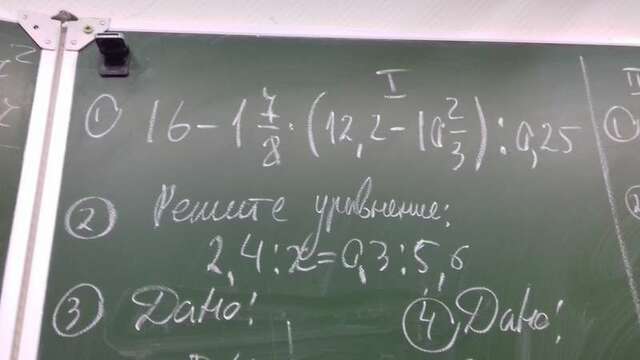 I
① 16 - 1 7/8 · (12,2 - 10 2/3) : 0,25
② Решите уравнение:
2,4 : x = 0,3 : 5,6
③ Дано:
④ Дано: